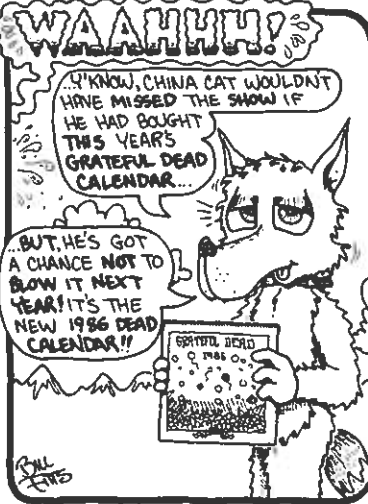 WAAHHH!
...Y'KNOW, CHINA CAT WOULDNT
HAVE MISSED THE SHOW IF
HE HAD BOUGHT
THIS YEAR'S
GRATEFUL DEAD
CALENDAR...
...BUT, HE'S GOT
A CHANCE NOT TO
BLOW IT NEXT
YEAR! IT'S THE
NEW 1986 DEAD
CALENDAR!!
GRATEFUL DEAD
1986
BILL